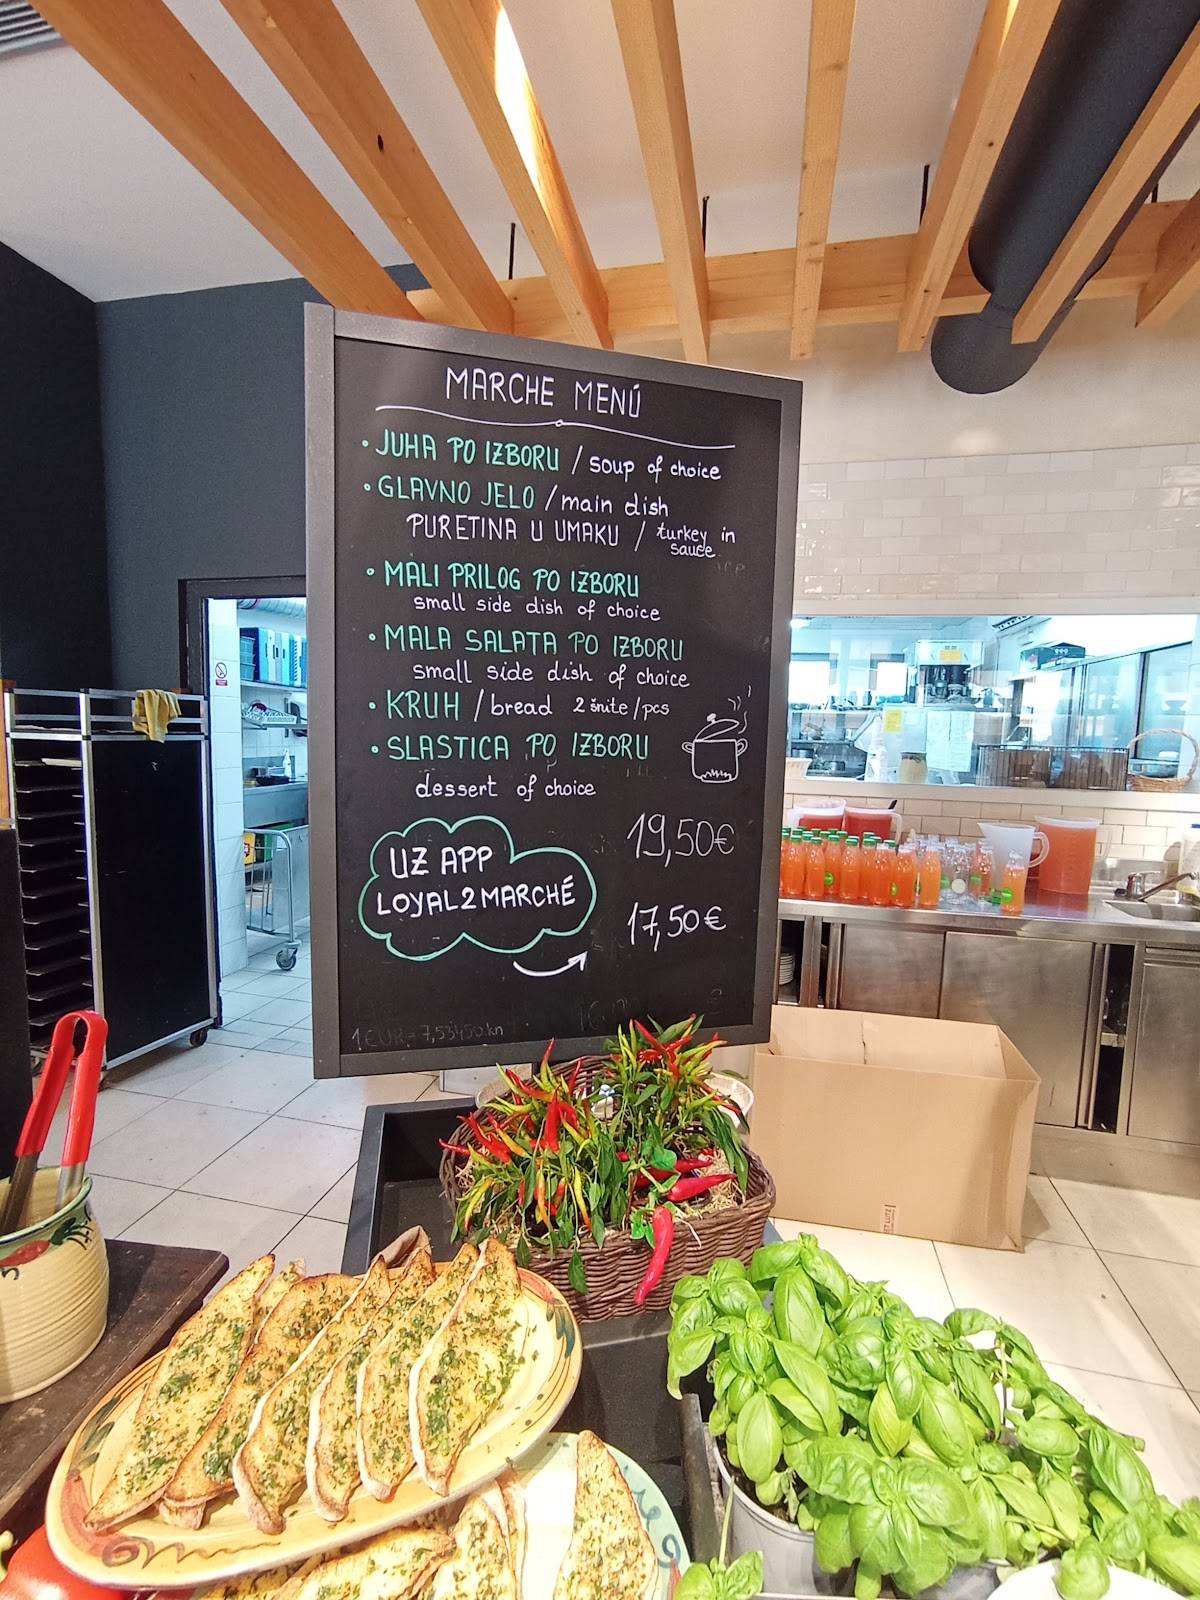 MARCHE MENÚ
• JUHA PO IZBORU / soup of choice
• GLAVNO JELO / main dish
PURETINA U UMAKU / turkey in
sauce
• MALI PRILOG PO IZBORU
small side dish of choice
• MALA SALATA PO IZBORU
small side dish of choice
• KRUH / bread 2 šnite / pcs
• SLASTICA PO IZBORU
dessert of choice
19,50€
UZ APP
LOYAL2MARCHÉ
17,50€
1 EUR = 7,53450 kn